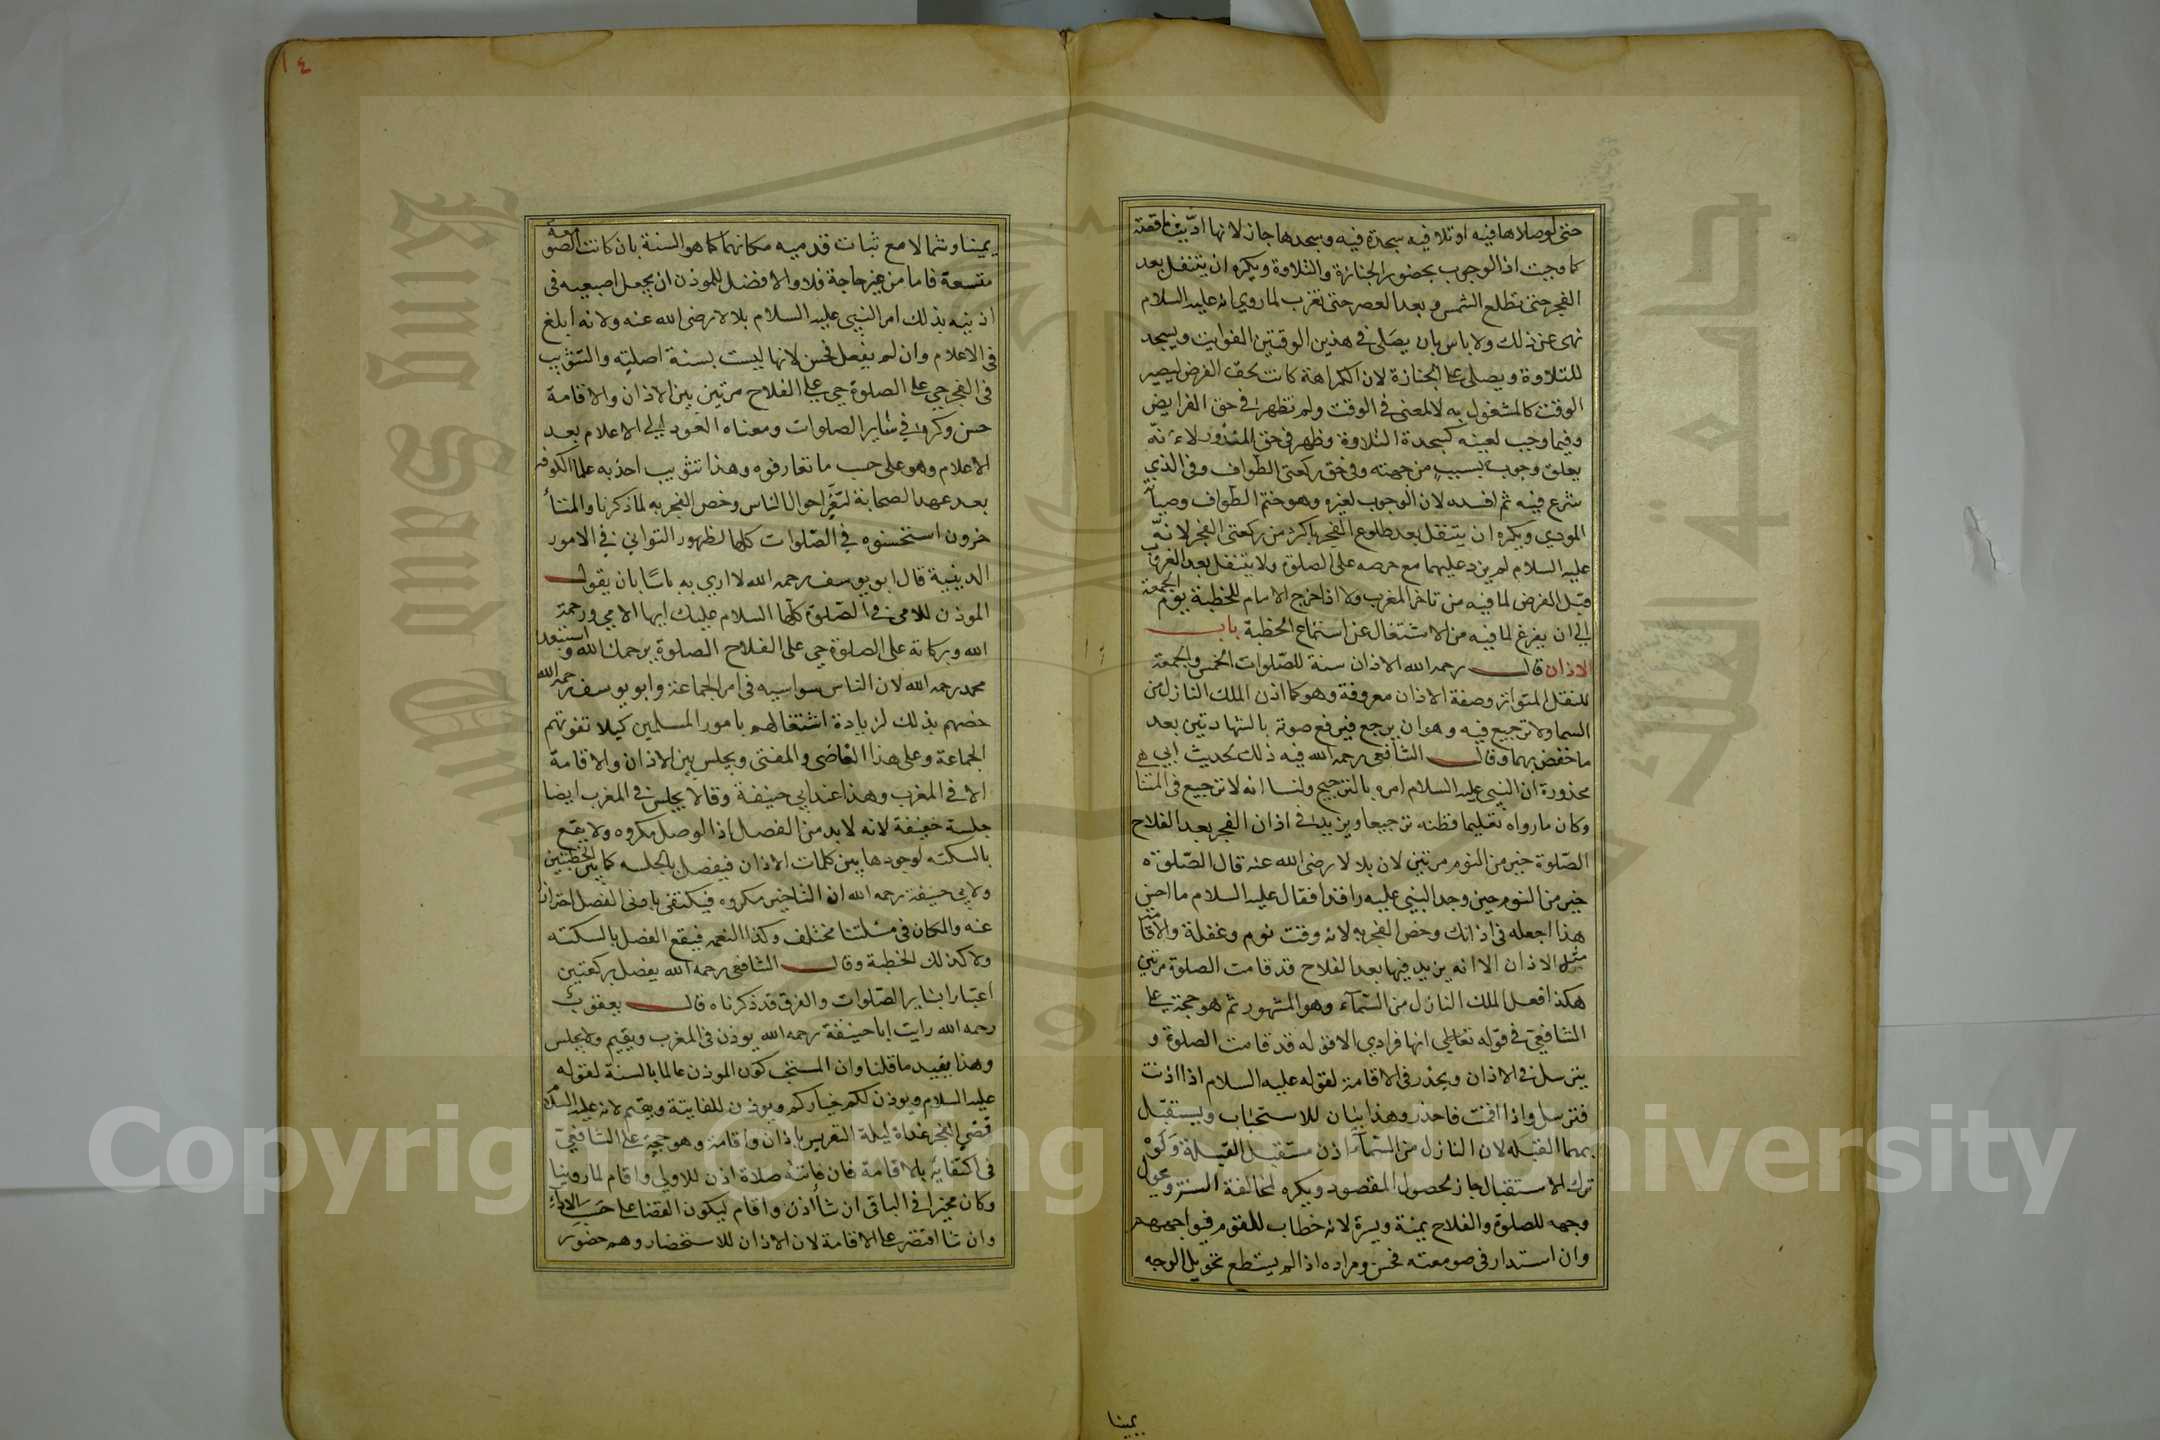 حتى لوصلاها فيه او تلا فيه سجدة فيه وسجدها جاز لانها اديت ناقصة
كما وجبت اذ الوجوب بحضور الجنازة والتلاوة ويكره ان يتنفل بعد
الفجر حتى تطلع الشمس وبعد العصر حتى تغرب لما روي انه عليه السلام
نهى عن ذلك ولا باس بان يصلى في هذين الوقتين الفوايت ويسجد
للتلاوة ويصلى على الجنازة لان الكراهة كانت لحق الفرض ليصير
الوقت كالمشغول به لا لمعنى في الوقت ولم تظهر في حق الفرايض
وفيما وجب لعينه كسجدة التلاوة وظهر في حق المنذور لانه
يعلق وجوبه بسبب من جهته وفي حق ركعتي الطواف وفي الذي
شرع فيه ثم افسده لان الوجوب لغيره وهو ختم الطواف وصيانة
المودي ويكره ان يتنفل بعد طلوع الفجر باكثر من ركعتي الفجر لانه
عليه السلام لم يزد عليهما مع حرصه على الصلوة ولا يتنفل بعد الغروب
قبل الفرض لما فيه من تاخر المغرب ولا اذا خرج الامام للخطبة يوم الجمعة
الى ان يفرغ لما فيه من الاشتغال عن استماع الخطبة باب
الاذان قال رحمه الله الاذان سنة للصلوات الخمس والجمعة
للنقل المتواتر وصفة الاذان معروفة وهو كما اذن الملك النازل من
السما ولا ترجيع فيه وهو ان يرجع فيرفع صوته بالشهادتين بعد
ما خفض بهما وقال الشافعي رحمه الله فيه ذلك لحديث ابي
محذورة ان النبي عليه السلام امره بالترجيع ولنا انه لا ترجيع في المشا
وكان ما رواه تعليما فظنه ترجيعا ويزيد في اذان الفجر بعد الفلاح
الصلوة خير من النوم مرتين لان بلالا رضى الله عنه قال الصلوة
خير من النوم حين وجد النبي عليه راقدا فقال عليه السلام ما احسن
هذا اجعله في اذانك وخص الفجر به لانه وقت نوم وغفلة والاقامة
مثل الاذان الا انه يزيد فيها بعد الفلاح قد قامت الصلوة مرتين
هكذا فعل الملك النازل من السمآء وهو المشهور ثم هو حجة على
الشافعي في قوله تعالى انها فرادي الا قوله قد قامت الصلوة و
يترسل في الاذان ويحدر في الاقامة لقوله عليه السلام اذا اذنت
فترسل واذا اقمت فاحدر وهذا بيان للاستحباب ويستقبل
بهما القبلة لان النازل من السمآء اذن مستقبل القبلة ولو
ترك الاستقبال جاز لحصول المقصود ويكره لمخالفة السنة ويحول
وجهه للصلوة والفلاح يمنة ويسرة لانه خطاب للقوم فيواجههم
وان استدار في صومعته فحسن ومراده اذا لم يستطع تحويل الوجه
يمينا
١٤
يمينا وشمالا مع ثبات قدميه مكانهما كما هو السنة بان كانت الصومعة
متسعة فاما من غير حاجة فلا والافضل للموذن ان يجعل اصبعيه في
اذنيه بذلك امر النبي عليه السلام بلالا رضى الله عنه ولانه ابلغ
في الاعلام وان لم يفعل فحسن لانها ليست بسنة اصلية والتثويب
في الفجر حي على الصلوة حي على الفلاح مرتين بين الاذان والاقامة
حسن وكره في ساير الصلوات ومعناه العود الى الاعلام بعد
الاعلام وهو على حسب ما تعارفوه وهذا تثويب احدثه علما الكوفة
بعد عهد الصحابة لتغير احوال الناس وخص الفجر به لما ذكرنا والمتأ
خرون استحسنوه في الصلوات كلها لظهور التواني في الامور
الدينية قال ابو يوسف رحمه الله لا ارى به باسا بان يقول
الموذن للامير في الصلوة كلها السلام عليك ايها الامير ورحمة
الله وبركاته على الصلوة حي على الفلاح الصلوة يرحمك الله واستبعد
محمد رحمه الله لان الناس سواسيه في امر الجماعة وابو يوسف رحمه الله
خصهم بذلك لزيادة اشتغالهم بامور المسلمين كيلا تفوتهم
الجماعة وعلى هذا القاضي والمفتي ويجلس بين الاذان والاقامة
الا في المغرب وهذا عند ابي حنيفة وقالا يجلس في المغرب ايضا
جلسة خفيفة لانه لا بد من الفصل اذ الوصل مكروه ولا يقع
بالسكته لوجودها بين كلمات الاذان فيفصل بالجلسه كما بين الخطبتين
ولابي حنيفة رحمه الله ان التاخير مكروه فيكتفي بادنى الفصل احترازا
عنه والمكان في مسئلتنا مختلف وكذا النغمه فيقع الفصل بالسكته
ولا كذلك الخطبة وقال الشافعي رحمه الله يفصل بركعتين
اعتبارا بساير الصلوات والفرق قد ذكرناه قال يعقوب
رحمه الله رايت ابا حنيفة رحمه الله يوذن في المغرب ويقيم ولا يجلس
وهذا يفيد ما قلنا وان المستحب كون الموذن عالما بالسنة لقوله
عليه السلام ويوذن لكم خياركم ويوذن للفايتة ويقيم لانه عليه السلام
قضى الفجر غداة ليلة التعريس باذان واقامة وهو حجة على الشافعي
في اكتفايه بالاقامة فان فاتته صلاة اذن للاولى واقام لما روينا
وكان مخيرا في الباقي ان شا اذن واقام ليكون القضا على حسب الاداء
وان شا اقتصر على الاقامة لان الاذان للاستحضار وهم حضور
Copyright © King Saud University